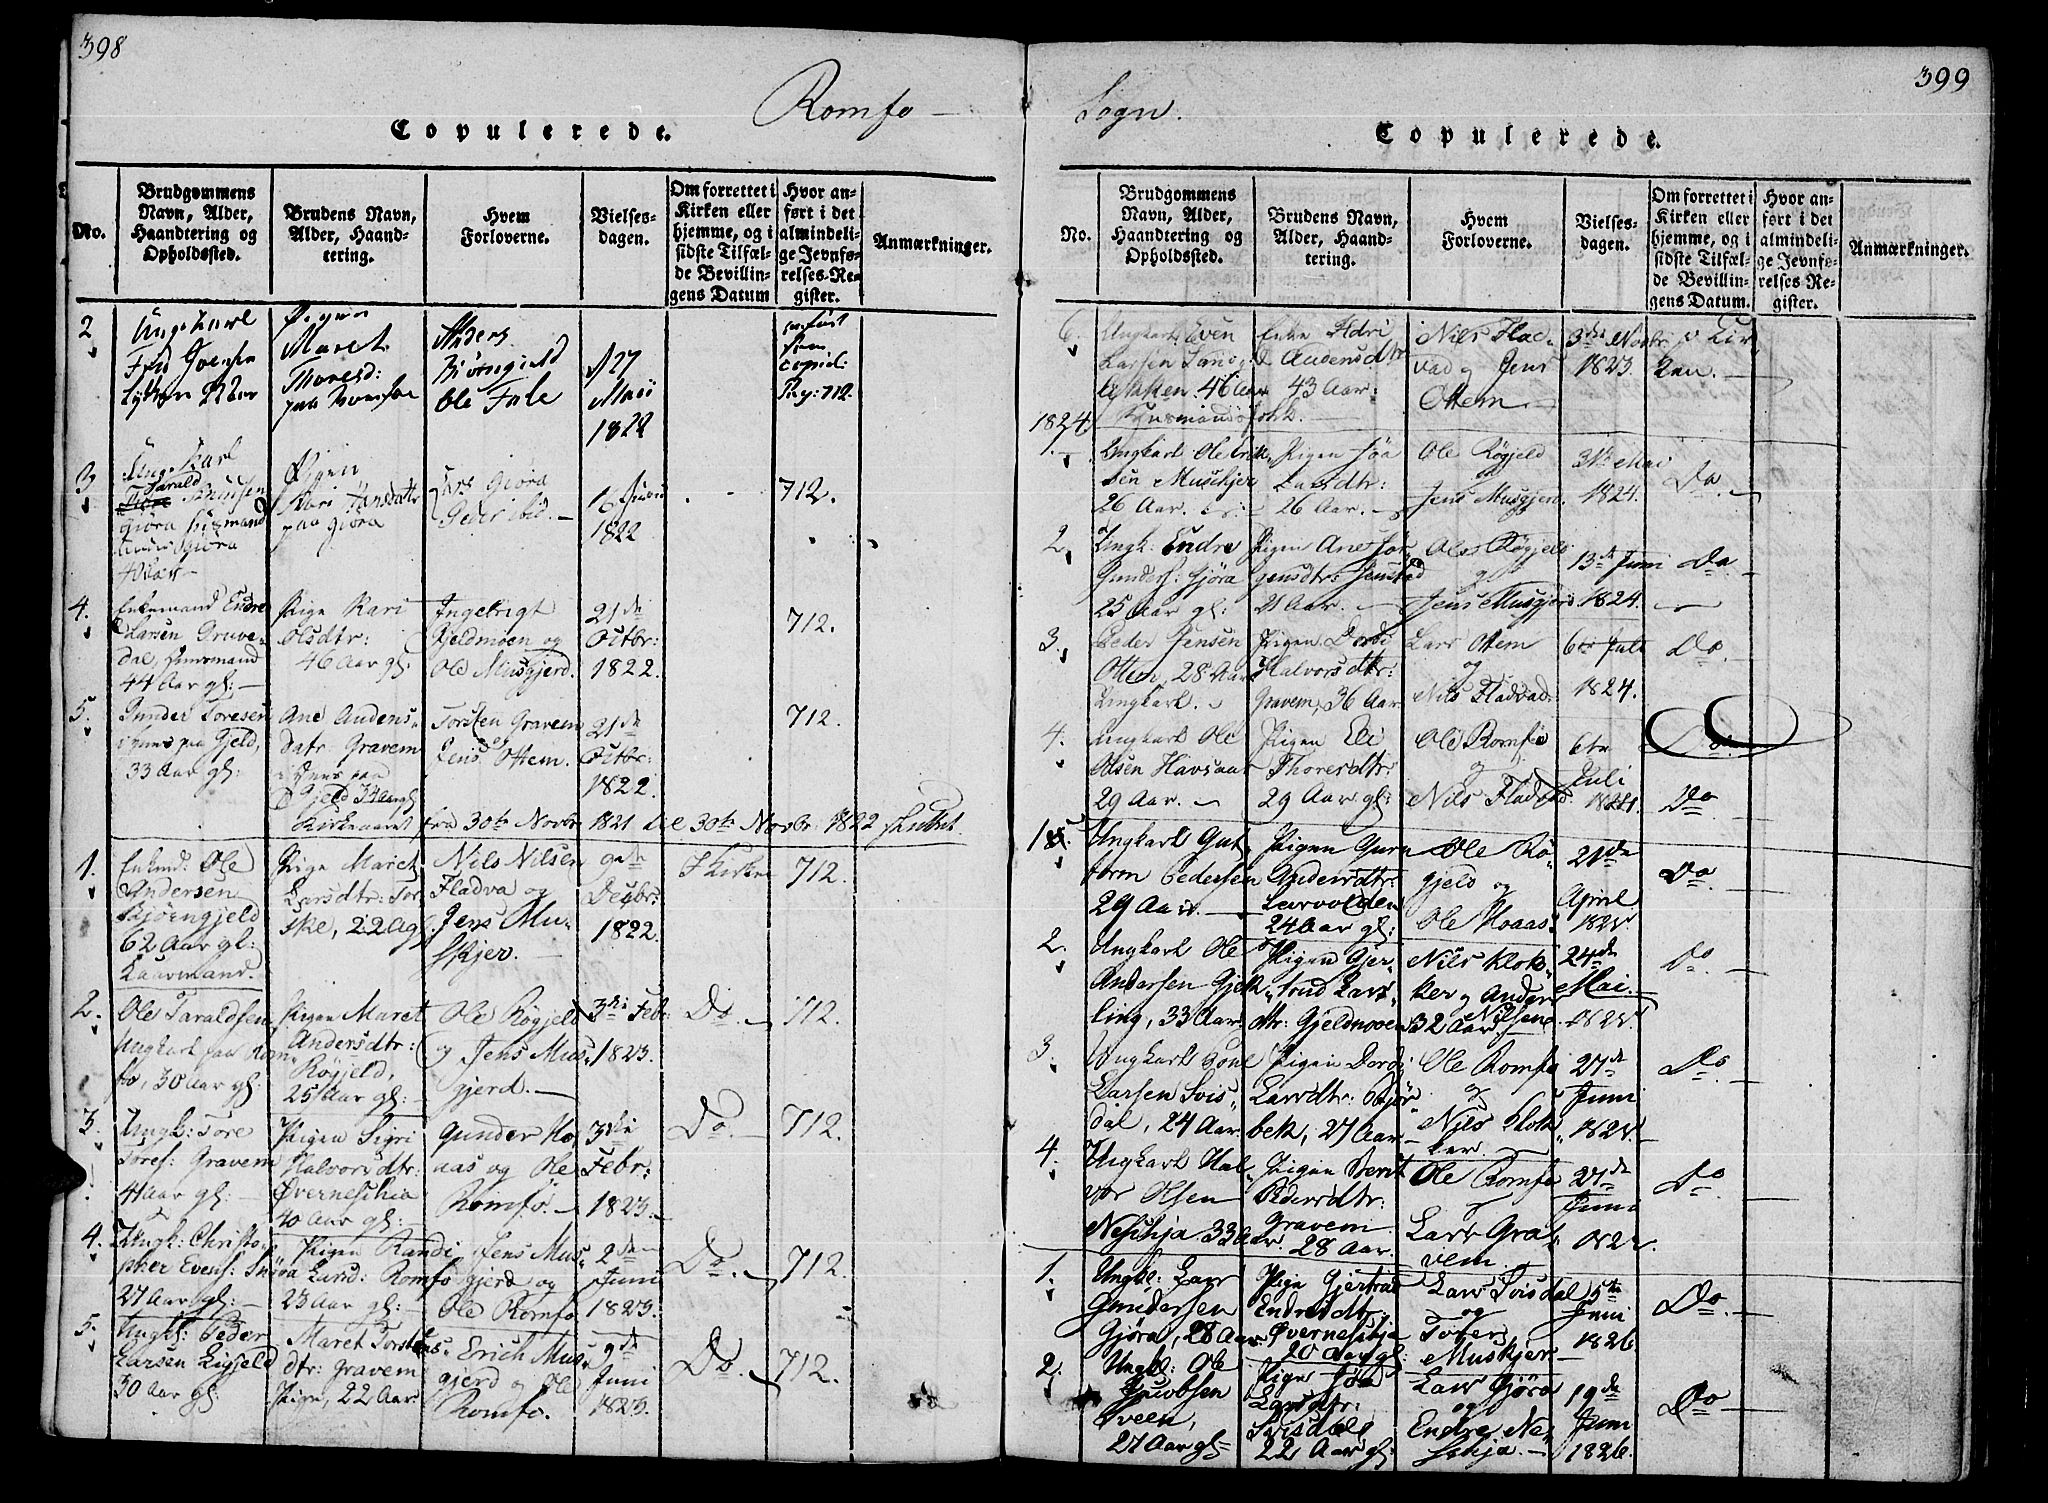 398
Romfo — Sogn.
399
Copulerede.
No.
Brudgommens Navn, Alder, Haandtering og Opholdssted.
Brudens Navn, Alder, Haandtering.
Hvem Forloverne.
Vielsesdagen.
Om forrettet i Kirken eller hjemme, og i sidste Tilfælde Bevillingens Datum
Hvor anført i det almindelige Jevnførelses-Register.
Anmærkninger.
2
Ungkarl
Pigen
Maret
Anders
Biørngield
Ole Fale
27
Maii
1822
Pag: 712.
3
Ungkarl
Tarald
Giøra
Pigen
Kari
paa Giøra
Lars Giøra
Peder ibid. —
16 Junii
1822
712.
4.
Enkemand Endre
Larsen Druve-
dal, Huusmand
44 Aar gl: —
Pige Kari
Olsdtr:
46 Aar gl:
Ingebrigt
Gjeldmoen og
Ole Musgjerd.
21de
Octbr:
1822.
712.
5.
Gunder Toresen
Huus paa Gjeld,
33 Aar gl:
Ane Audens-
datr Gravem
Huus paa
Gjeld 34 Aar gl
Torsten Gravem
og
Jens Ottem.
21de
Octbr:
1822.
712.
Kirkeaaret fra 30te Novbr 1821 til 30te Novbr: 1822 sluttet
1.
Enkmd: Ole
Andersen
Bjørngjeld
62 Aar gl:
Pige Maret
Larsdtr: Tor-
ske, 22 Ag.
Nils Nilsen
Fladva og
Jens Mu-
skjer. —
9de
Decbr:
1822.
I Kirken
712.
2.
Ole Taraldsen
Ungkarl paa Rom-
fo, 30 Aar gl.
Pigen Maret
Andersdtr:
Røgjeld,
25 Aar gl: —
Ole Røgjeld
og Jens Mus-
gjerd. —
3die Febr:
1823.
Do. —
712.
3.
Ungk: Tore
Tores: Gravem
41 Aar gl: —
Pigen Sigri
Halvorsdtr:
Øverneschia
40 Aar gl:
Gunder Ho-
aas og Ole
Romfo. —
3die
Febr:
1823. —
Do. —
712.
4.
Ungk: Christo-
pher Evens: Snøva
27 Aar gl: —
Pigen Randi
Larsd: Romfo
23 Aar gl: —
Jens Mus-
gjerd og
Ole Romfo
2den
Juni
1823.
Do. —
712.
5.
Ungk: Peder
Larsen
30 Aar gl.
Maret Torstens-
dtr: Gravem
Pige, 22 Aar.
Erich Mus-
gjerd og Ole
Romfo.
9de
Juni
1823.
Do. —
712.
Copulerede.
No.
Brudgommens Navn, Alder, Haandtering og Opholdssted.
Brudens Navn, Alder, Haandtering.
Hvem Forloverne.
Vielsesdagen.
Om forrettet i Kirken eller hjemme, og i sidste Tilfælde Bevillingens Datum.
Hvor anført i det almindelige Jevnførelses Register.
Anmærkninger.
6.
Ungkarl Even
Larsen
46 Aar
Enke Ildri
Audensdtr
43 Aar:
Nils Flad-
vad og Jens
Ottem —
3die Novbr
1823.
i Kir-
ken. —
1824.
1. —
Ungkarl Ole Erik-
sen Muschjer
26 Aar.
Pigen Joa
Larsdtr:
26 Aar. —
Ole Røgjeld
og
Jens Musgjerd.
31te Mai
1824.
Do. —
2.
Ungk: Endre
Gunders: Gjøra
25 Aar gl:
Pigen Ane Jør-
gensdtr: Jenstad
21 Aar. —
Ole Røgjeld
og
Jens Musgjerd
13de Juni
1824.
Do —
3.
Peder Jensen
Ottem, 28 Aar
Ungkarl. —
Pigen Dordi
Halvorsdtr:
Gravem, 36 Aar
Lars Ottem
og
Nils Fladvad.
6te Juli
1824.
Do. —
4.
Ungkarl Ole
Olsen Havsaas
29 Aar. —
Pigen Eli
Thoresdtr:
29 Aar gl:
Ole Romfo
og
Nils Fladvad.
6te
Juli
1824.
Do
1.
Ungkarl Gut-
torm Pedersen
29 Aar. —
Pigen Guru
Andersdtr:
Larvolden
24 Aar gl:
Ole Rø-
gjeld og
Ole Hoaas
21de
April
1825.
Do —
2.
Ungkarl Ole
Andersen Gjek-
ling, 33 Aar
Pigen Gjer-
trud Lars-
dtr: Gjeldmoen 32 Aar
Nils Klok-
ker og Anders
Nilsen
24de
Mai.
1825.
Do —
3.
Ungkarl Poul
Larsen Svis-
dal, 24 Aar
Pigen Dordi
Larsdtr: Bjør-
bek, 27 Aar
Ole Romfo
og
Nils Klok-
ker. —
27de
Juni
1825.
Do —
4.
Ungkarl Hal-
vor Olsen
Neschja 33 Aar
Pigen Berit
Pedersdtr:
Gravem
28 Aar.
Ole Romfo
og
Lars Gra-
vem.
27de
Juni
1825.
Do —
1.
Ungk: Lars
Gundersen
Gjøra, 28 Aar
Pige Gjertrud
Endresdtr:
Øverneschja
20 Aar gl:
Lars Svisdal
og
Tore
Muskjer —
5te
Juni
1826
Do —
2.
Ungk: Ole
Jacobsen
Tveen,
27 Aar gl=
Pige Joa
Larsdtr:
Svisdal
22 Aar gl:
Lars Gjøra
og
Endre Ne-
schja. —
19de
Juni
1826.
Do —